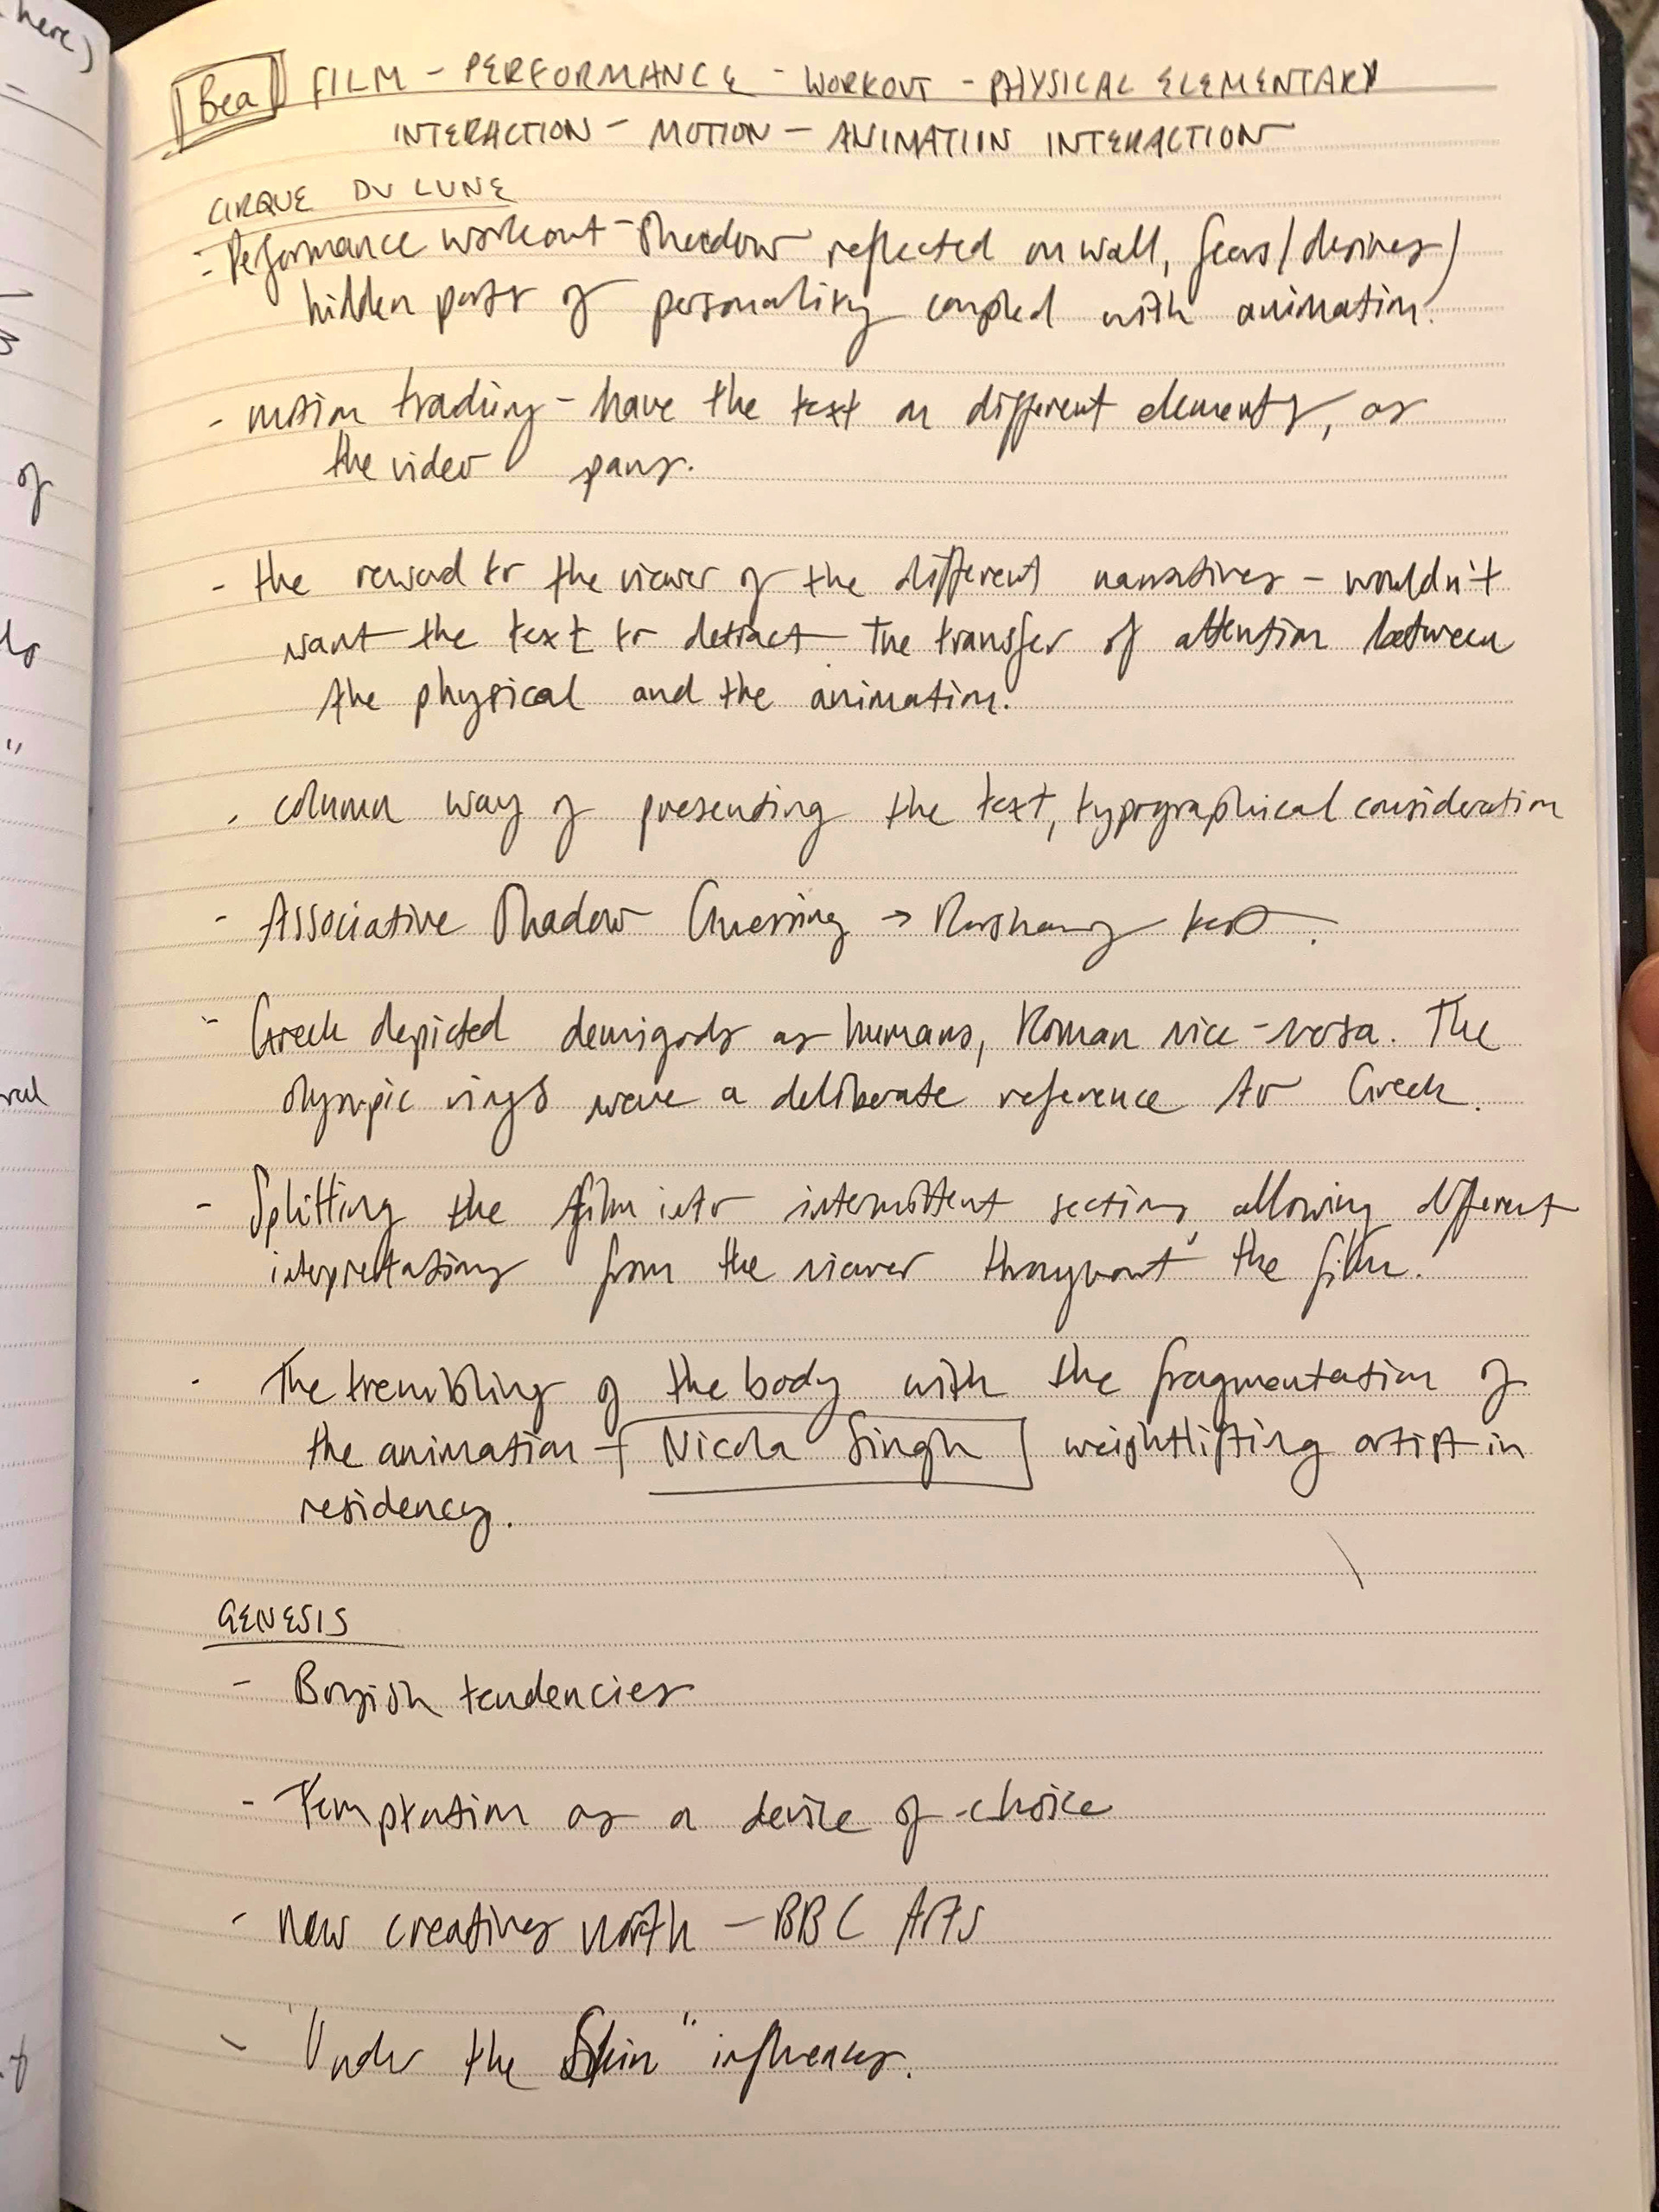 here)
of
"
Bea FILM - PERFORMANCE - WORKOUT - PHYSICAL ELEMENTARY
INTERACTION - MOTION - ANIMATION INTERACTION
CIRQUE DU LUNE
- Performance workout - Shadow reflected on wall, fears/desires/
hidden parts of personality coupled with animation.
- motion tracking - have the text on different elements, as
the video pans.
- the reward to the viewer of the different narratives - wouldn't
want the text to detract. The transfer of attention between
the physical and the animation.
. column way of presenting the text, typographical consideration
- Associative Shadow Guessing → test.
- Greek depicted demigods as humans, Roman vice-versa. The
olympic rings were a deliberate reference to Greek.
- Splitting the film into intermittent sections, allowing different
interpretations from the viewer throughout the film.
. The trembling of the body with the fragmentation of
the animation - [Nicola Singh] weightlifting artist in
residency.
GENESIS
- Boyish tendencies
- Temptation as a device of choice
- New creatives north - BBC Arts
- "Under the Skin" influences.